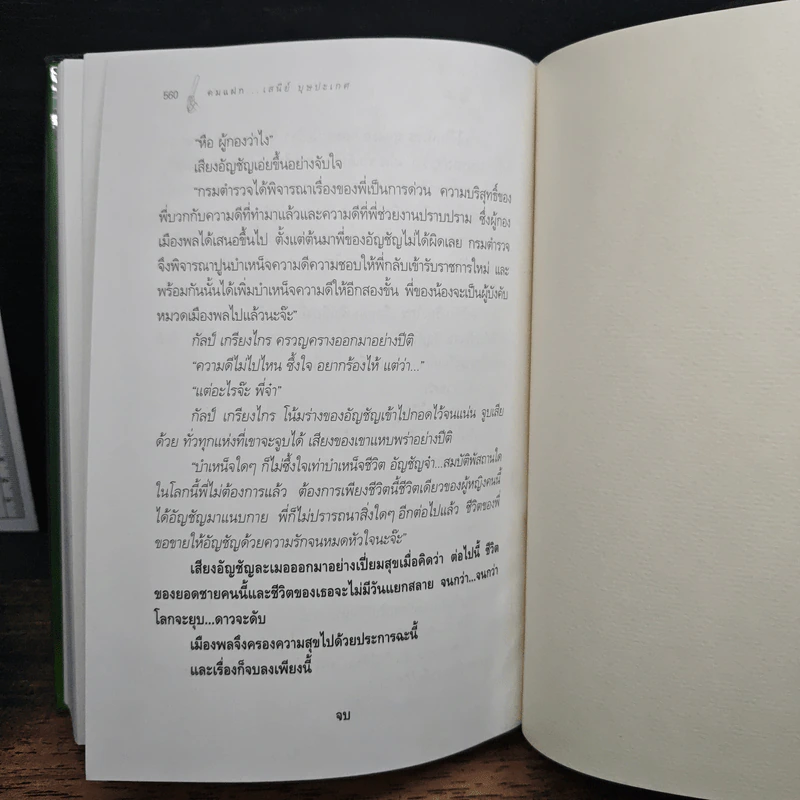 560 คมแฝก...เสนีย์ บุษปะเกศ
"หือ ผู้กองว่าไง"
เสียงอัญชัญเอ่ยขึ้นอย่างจับใจ
"กรมตำรวจได้พิจารณาเรื่องของพี่เป็นการด่วน ความบริสุทธิ์ของ
พี่บวกกับความดีที่ทำมาแล้วและความดีที่พี่ช่วยงานปราบปราม ซึ่งผู้กอง
เมืองพลได้เสนอขึ้นไป ตั้งแต่ต้นมาพี่ของอัญชัญไม่ได้ผิดเลย กรมตำรวจ
จึงพิจารณาปูนบำเหน็จความดีความชอบให้พี่กลับเข้ารับราชการใหม่ และ
พร้อมกันนั้นได้เพิ่มบำเหน็จความดีให้อีกสองขั้น พี่ของน้องจะเป็นผู้บังคับ
หมวดเมืองพลไปแล้วนะจ๊ะ"
กัลป์ เกรียงไกร ครวญครางออกมาอย่างปีติ
"ความดีไม่ไปไหน ซึ้งใจ อยากร้องไห้ แต่ว่า..."
"แต่อะไรจ๊ะ พี่จ๋า"
กัลป์ เกรียงไกร โน้มร่างของอัญชัญเข้าไปกอดไว้จนแน่น จูบเสีย
ด้วย ทั่วทุกแห่งที่เขาจะจูบได้ เสียงของเขาแหบพร่าอย่างปีติ
"บำเหน็จใดๆ ก็ไม่ซึ้งใจเท่าบำเหน็จชีวิต อัญชัญจ๋า...สมบัติพัสถานใด
ในโลกนี้พี่ไม่ต้องการแล้ว ต้องการเพียงชีวิตนี้ชีวิตเดียวของผู้หญิงคนนี้
ได้อัญชัญมาแนบกาย พี่ก็ไม่ปรารถนาสิ่งใดๆ อีกต่อไปแล้ว ชีวิตของพี่
ขอขายให้อัญชัญด้วยความรักจนหมดหัวใจนะจ๊ะ"
เสียงอัญชัญละเมอออกมาอย่างเปี่ยมสุขเมื่อคิดว่า ต่อไปนี้ ชีวิต
ของยอดชายคนนี้และชีวิตของเธอจะไม่มีวันแยกสลาย จนกว่า...จนกว่า
โลกจะยุบ...ดาวจะดับ
เมืองพลจึงครองความสุขไปด้วยประการฉะนี้
และเรื่องก็จบลงเพียงนี้
จบ